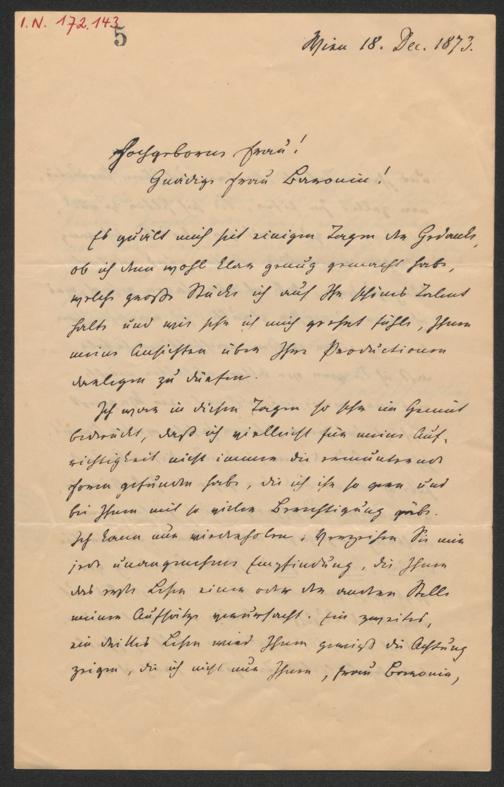 I.N. 172.143
5
Wien 18. Dec. 1873.
Hochgeborne Frau!
Gnädige Frau Baronin!
Es quält mich seit einigen Tagen der Gedanke,
ob ich denn wohl klar genug gemacht habe,
welche große Stücke ich auf Ihr schönes Talent
halte und wie sehr ich mich geehrt fühle, Ihnen
meine Ansichten über Ihre Productionen
darlegen zu dürfen.
Ich war in diesen Tagen so sehr im Gemüt
bedrückt, daß ich vielleicht für meine Auf-
richtigkeit nicht immer die ermunternde
Form gefunden habe, die ich ihr so gern und
bei Ihnen mit so vieler Berechtigung gäbe.
Ich kann nur wiederholen: Verzeihen Sie mir
jede unangenehme Empfindung, die Ihnen
das erste Lesen einer oder der andern Stelle
meiner Aufsätze verursacht. Ein zweites,
ein drittes Lesen wird Ihnen gewiß die Achtung
zeigen, die ich nicht nur Ihnen, Frau Baronin,